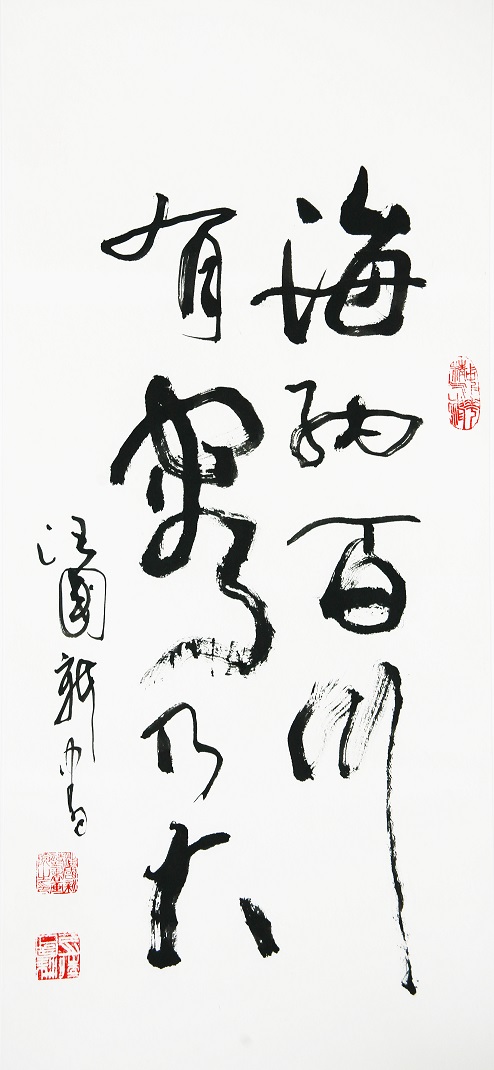 海纳百川
有容乃大
汪國新